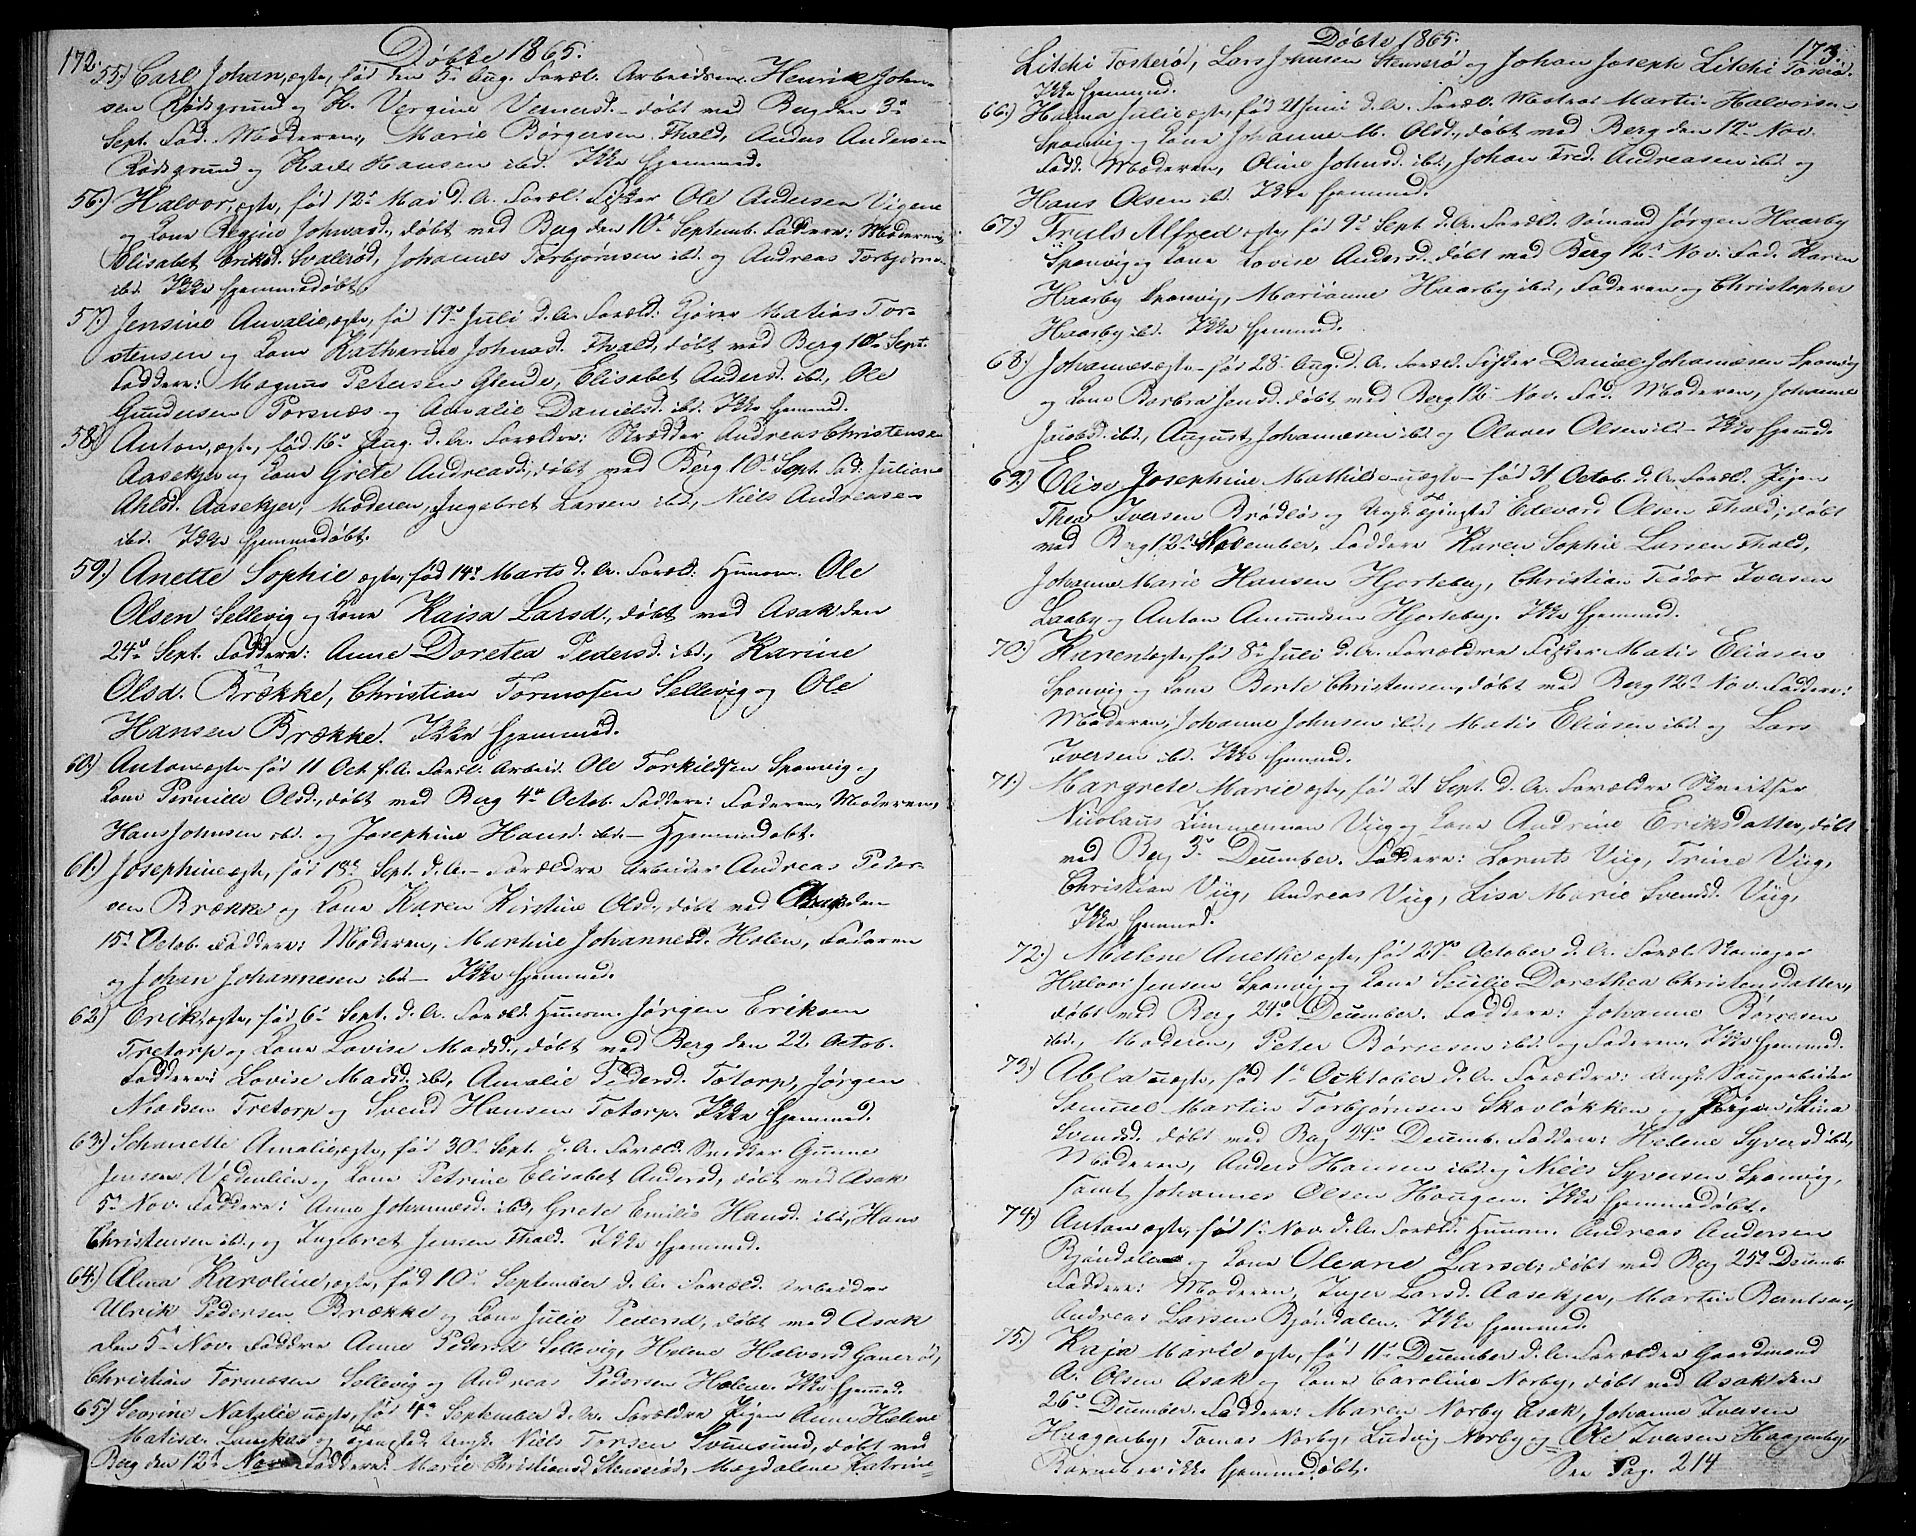 172.
Døbte 1865.
55.) Carl Johan, ægte, fød den 5te Aug. Foræl. Arbeidsm. Henrik John-
sen Rødsgrund og K. Vergine Vernersd. døbt ved Berg den 3die
Sept. Fad. Moderen, Marie Börgersen Fhald, Anders Andersen
Rødsgrund og Karl Hansen ibd. Ikke hjemmed.
56.) Halvor, ægte, fød 12te Mai d. A. Foræl. Fisker Ole Andersen Vigene
og Kone Regine Johnsd., døbt ved Berg den 10de Septemb. Faddere: Moderen,
Elisabet Eriksd. Svalerød, Johannes Torbjørnsen ibd. og Andreas Torbjørns.
ibd. Ikke hjemmedøbt.
57.) Jensine Amalie, ægte, fød 19de Juli d. A. Foræld: Kjører Matias Tor-
stensen og Kone Katharine Johnsd. Fhald, døbt ved Berg 10de Sept.
Faddere: Magnus Petersen Glende, Elisabet Andersd. ibd., Ole
Gundersen Torsnæs og Amalie Danielsd. ibd. Ikke hjemmed.
58.) Anton, ægte, fød 16de Aug. d. A. Forældre: Skrædder Andreas Christensen
Aasekjer og Kone Grete Andreasd., døbt ved Berg 10de Sept. Fad: Juliane
Ahlsd. Aasekjer, Moderen, Ingebret Larsen ibd., Niels Andreasen
ibd. Ikke hjemmedøbt.
59.) Anette Sophie ægte, fød 14de Marts d. A. Foræl: Husm. Ole
Olsen Sellevig og Kone Kaisa Larsd., døbt ved Asak den
24de Sept. Faddere: Anne Doretea Pedersd. ibd., Karine
Olsd. Brække, Christian Tormosen Sellevig og Ole
Hansen Brække. Ikke hjemmed.
60.) Anton ægte fød 11 Oct f. A. Foræl. Arbeid. Ole Torkildsen Sponvig og
Kone Pernille Olsd., døbt ved Berg 4de Octob. Faddere: Faderen, Moderen,
Hans Johnsen ibd. og Josephine Hansd. ibd. Hjemmedøbt.
61.) Josephine ægte, fød 18de Sept. d. A. Forældre Arbeider Andreas Peter-
sen Brække og Kone Karen Kirstine Olsd., døbt ved Asak den
15de Octob. Faddere: Moderen, Martine Johannesd. Holen, Faderen
og Johan Johannesen ibd. Ikke hjemmed.
62.) Erik, ægte, fød 6te Sept. d. A. Foræld. Husm. Jørgen Eriksen
Tretorp og Kone Lovise Madsd., døbt ved Berg den 22 Octob.
Faddere: Lovise Madsd. ibd., Amalie Pedersd. Totorp, Jørgen
Madsen Tretorp og Svend Hansen Totorp. Ikke hjemmed.
63.) Johanette Amalie, ægte, fød 30te Sept. d. A. Foræld. Snedker Gunne
Jensen Vedenlien og Kone Petrine Elisabet Andersd., døbt ved Asak
5te Nov. Faddere: Anne Johannesd. ibd., Grete Emilie Hansd. ibd., Hans
Christensen ibd., og Ingebret Jensen Fhald. Ikke hjemmed.
64.) Alma Karoline, ægte, fød 10de September d. A. Foræld. Arbeider
Ulrik Pedersen Brække og Kone Julie Pedersd., døbt ved Asak
den 5te Nov. Faddere Anne Pedersd. Sellevig, Helene Halvorsd. Ganerød,
Christian Tormosen Sellevig og Andreas Pedersen Holene. Ikke hjemmed.
65.) Severine Natalie uægte, fød 4de September d. A. Forældre Pigen Anne Helene
Matisd. og Ungk. Niels Svinesund, døbt ved
Berg den 12te Nov. Faddere: Marie Christiansd. Stenserød, Magdalene Katrine
Døbte 1865.
173.
Litchi Tosterød, Lars Johnsen Stenserød og Johan Joseph Litchi Tosterød.
Ikke hjemmed.
66.) Hanna Julie ægte, fød 21 Juni d. A. Foræl. Matros Martin Halvorsen
Sponvig og Kone Johanne M. Olsd., døbt ved Berg den 12te Nov.
Fadd. Moderen, Oline Johnsd. ibd., Johan Fred. Andreasen ibd og
Hans Olsen ibd. Ikke hjemmed.
67.) Truls Alfred ægte, fød 9de Sept d. A. Foræld. Sømand Jørgen Haarby
Sponvig og Kone Lovise Andersd. døbt ved Berg 12te Nov. Fad. Karen
Haarby Sponvig, Marianne Haarby ibd., Faderen og Christopher
Haarby ibd. Ikke hjemmed.
68.) Johannes ægte fød 28de Aug. d. A. Foræld. Fisker Daniel Johannesen Sponvig
og Kone Barbra Jensd. døbt ved Berg 12te Nov. Fad. Moderen, Johanne
Jacobsd. ibd., August Johannesen ibd og Olaves Olsen ibd. Ikke hjemmd.
69.) Elise Josephine Mathilde uægte fød 31 Octob. d. A. Foræld. Pigen
Thea Iversen Brødløs og Ungk. Edevard Olsen Fhald, døbt
ved Berg 12te November. Faddere Karen Sophie Larsen Fhald,
Johanne Marie Hansen Hjorteberg, Christian Teodor Iversen
Laaby og Anton Amundsen Hjorteberg. Ikke hjemmed.
70.) Karen ægte, fød 8de Juli d. A. Forældre Fisker Matis Eliasen
Sponvig og Kone Bente Christensen, døbt ved Berg 12te Nov. Faddere:
Moderen, Johanne Johnsen ibd., Matis Eliasen ibd og Lars
Iversen ibd. Ikke hjemmed.
71.) Margrete Marie ægte, fød 21 Sept. d. A. Forældre
Nicolaus Zimmerman Viig og Kone Andrine Eriksdatter, døbt
ved Berg 3die December. Faddere: Lorents Viig, Trine Viig,
Christian Viig, Andreas Viig, Lisa Marie Svendsd. Viig,
Ikke hjemmed.
72.) Malene Anethe ægte, fød 27de October d. A. Foræld
Halvor Jensen Sponvig og Kone Scicilie Dorethea Christensdatter,
døbt ved Berg 24de December. Faddere: Johanne Börresen
ibd., Moderen, Peter Börresen ibd. og Faderen, Ikke hjemmed.
73.) Abla uægte, fød 1ste Ocktober d. A. Forældre: Ungk. Saugarbeider
Samuel Martin Torbjørnsen Skovløkken og Pigen Stina
Svendsd. døbt ved Berg 24de Decemb. Faddere: Helene Syversd ibd,
Moderen, Anders Hansen ibd og Niels Syversen Sponvig,
samt Johannes Olsen Haugen. Ikke hjemmedøbt.
74.) Anton ægte, fød 1ste Nov. d. A. Foræld. Husm. Andreas Andersen
Bjøndalen og Kone Oleane Larsd., døbt ved Berg 25de Decemb.
Faddere: Moderen, Inger Larsd. Aasekjer, Martin Berntsen,
Andreas Larsen Bjøndalen. Ikke hjemmed.
75.) Kaja Marie ægte, fød 11te December d. A. Forældre Gaardmand
A. Olsen Asak og Kone Caroline Norby, døbt ved Asak den
26de December. Faddere: Maren Norby Asak, Johanne Iversen
Haagenby, Tomas Norby, Ludvig Norby og Ole Iversen Haagenby,
Barnet er ikke hjemmedøbt.
See Pag. 214